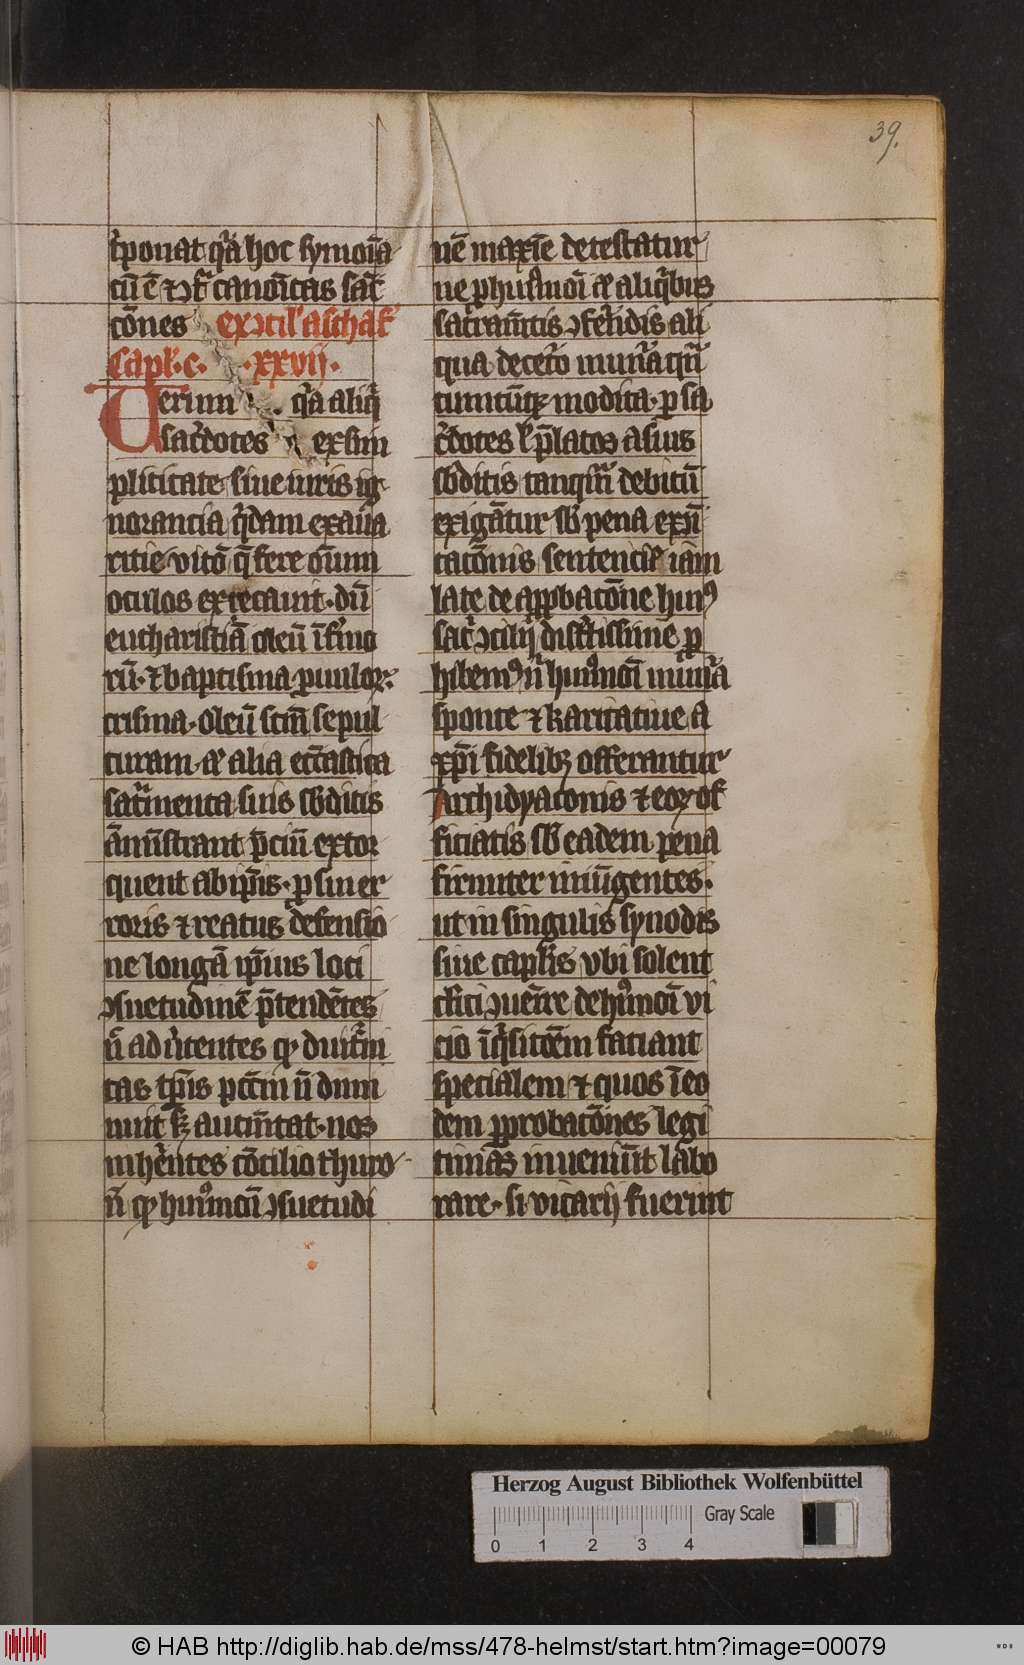 39.
t̾ponat qꝛ̃a hoc symoĩa
cũ ẽ ⁊ ↄt̃ canoĩcas sãc
cõnes ex ↄcil' aschaf̃
Capl'. c. .xxvij.
Uerum qꝛ̃a aliq̃
sac̃dotes ex sim
plicitate siue iuris ig
norancia q̃dam ex aua
ritie vitõ q̃ fere oĩum
oculos excecauit. dũ
eucharistiã oleũ ĩfirmo
rũ. ⁊ baptisma ꝑuulor̨.
crisma. oleũ scm̃ sepul
turam. ⁊ alia ecc̃astica
sac̃menta suis sb̃ditis
ãmĩstrant p̃ciũ extor
quent ab ip̃is. ꝓ sui er
roris ⁊ reatus defensio
ne longã ip̃ius loci
ↄsuetudinẽ p̃tendẽtes
ñ aduertentes ꝙ diuturni
tas tp̃is pcc̃m ñ dimi
nuit sꝫ aucm̃tat. nos
inherẽtes cõcilio thuro
ñ ꝙ huiꝰmodi ↄsuetudi
nẽ maxĩe detestatur
ne ꝑ huiꝰmoi ⁊ aliq̃bus
sacram̃tis ↄferẽdis ali
qua de cet̃o munẽa q̃m̃
cumcũqꝫ modica. ꝑ sa
c̃dotes l' p̃latos a suis
sb̃ditis tanqm̃ debitũ
exigãtur sb̃ pena exↄĩ
cacõnis sentencie iam
late de app̃bacõne huiꝰ
sac̃ ↄcilij districtissime ꝓ
hibemꝰ ñ huiꝰmoi munẽa
sponte ⁊ karitatiue a
xp̃i fidelibꝫ offerantur
Archidyaconis ⁊ eoꝝ of
ficiatis sb̃ eadem pena
firmiter iniũgentes.
ut in singulis synodis
siue capl'is vbi solent
cl'ici ↄuẽire de hꝰmoi vi
cio ĩq̃sitõem faciant
specialem ⁊ quos ĩ eo
dem ꝑ probacõnes legi
timas inueniũt labo
rare. si vicarij fuerint
Herzog August Bibliothek Wolfenbüttel
Gray Scale
0 1 2 3 4
© HAB http://diglib.hab.de/mss/478-helmst/start.htm?image=00079